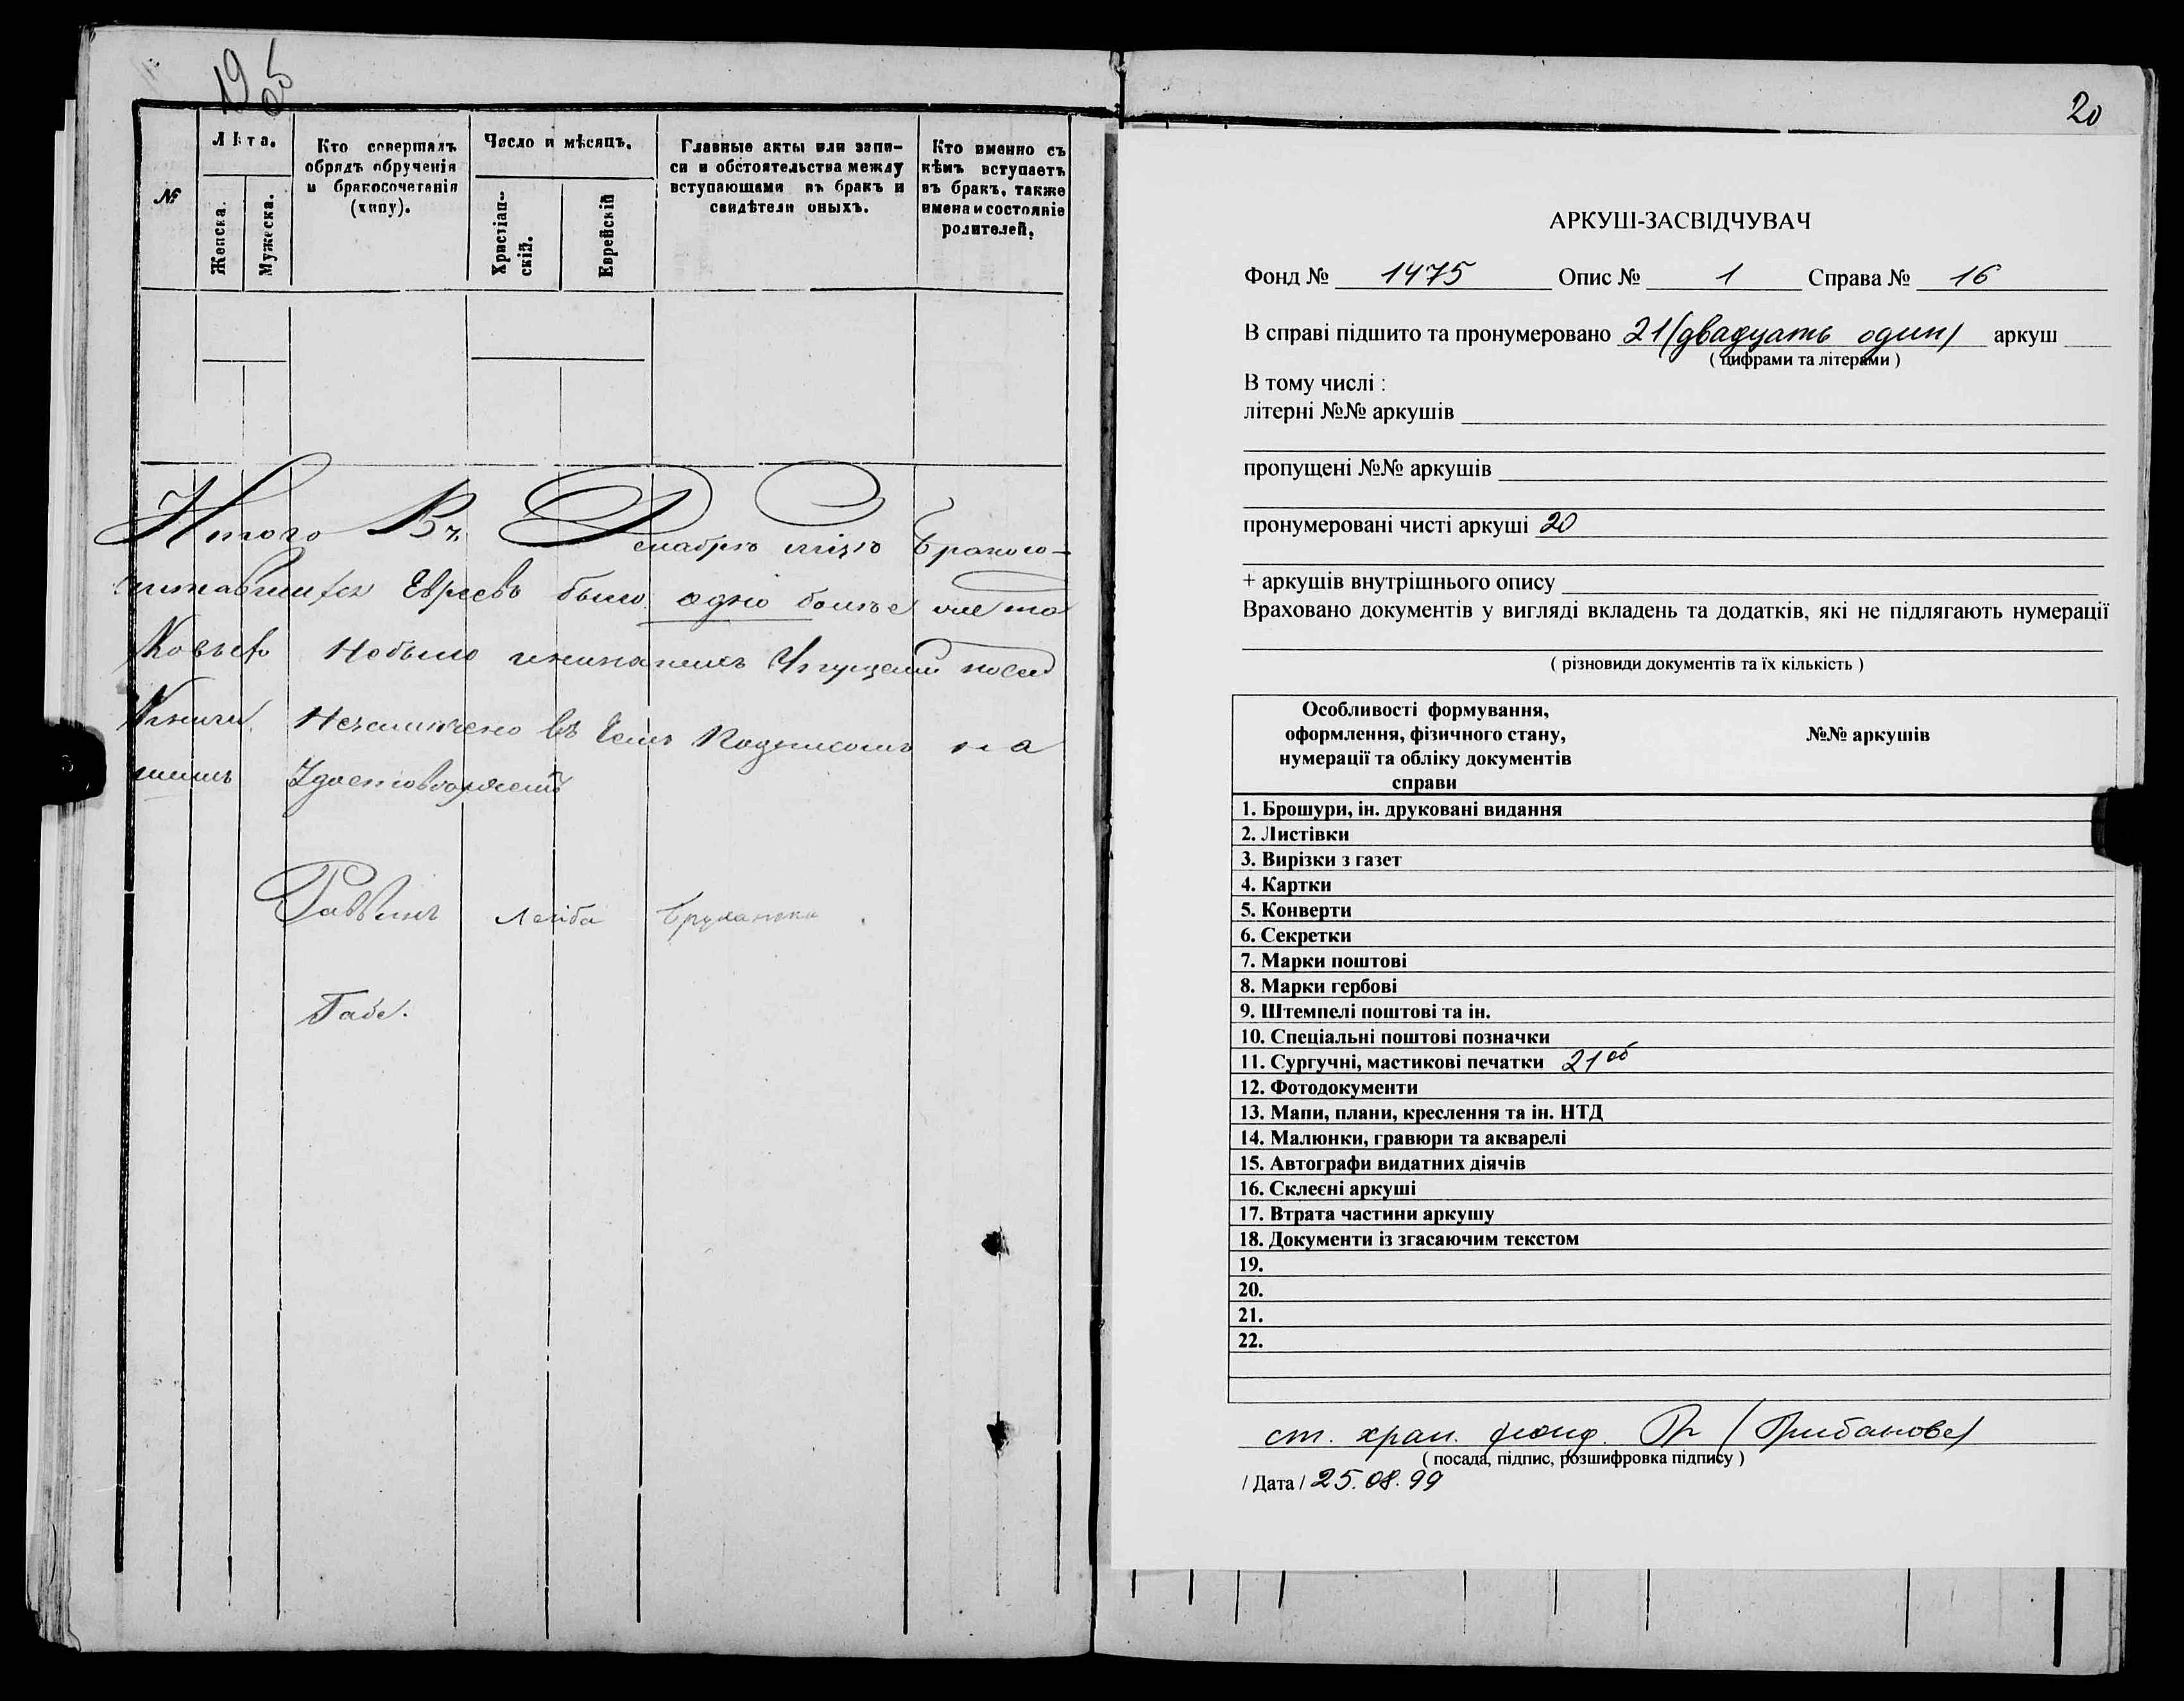 19
об
№
Лѣта.
Женска.
Мужеска.
Кто совершалъ
обрядъ обрученія
и бракосочетанія
(хипу).
Число и мѣсяцъ.
Христіан-
скій.
Еврейскій
Главные акты или запи-
си и обстоятельства между
вступающими въ бракъ и
свидѣтели оныхъ.
Кто именно съ
кѣмъ вступаетъ
въ бракъ, также
имена и состояніе
родителей.
Итого Въ Декабрѣ мцѣ бракосо-
Евреевъ было одно болѣе
Небыло
въ чемъ Подписомъ на
Раввинъ Лейба
20
АРКУШ-ЗАСВІДЧУВАЧ
Фонд № 1475 Опис № 1 Справа № 16
В справі підшито та пронумеровано 21 (двадцать один) аркуш
( цифрами та літерами )
В тому числі :
літерні №№ аркушів
пропущені №№ аркушів
пронумеровані чисті аркуші 20
+ аркушів внутрішнього опису
Враховано документів у вигляді вкладень та додатків, які не підлягають нумерації
( різновиди документів та їх кількість )
Особливості формування,
оформлення, фізичного стану,
нумерації та обліку документів
справи
№№ аркушів
1. Брошури, ін. друковані видання
2. Листівки
3. Вирізки з газет
4. Картки
5. Конверти
6. Секретки
7. Марки поштові
8. Марки гербові
9. Штемпелі поштові та ін.
10. Спеціальні поштові позначки
11. Сургучні, мастикові печатки 21об
12. Фотодокументи
13. Мапи, плани, креслення та ін. НТД
14. Малюнки, гравюри та акварелі
15. Автографи видатних діячів
16. Склеєні аркуші
17. Втрата частини аркушу
18. Документи із згасаючим текстом
19.
20.
21.
22.
ст. хран. фонд.
( посада, підпис, розшифровка підпису )
/ Дата / 25.08.99